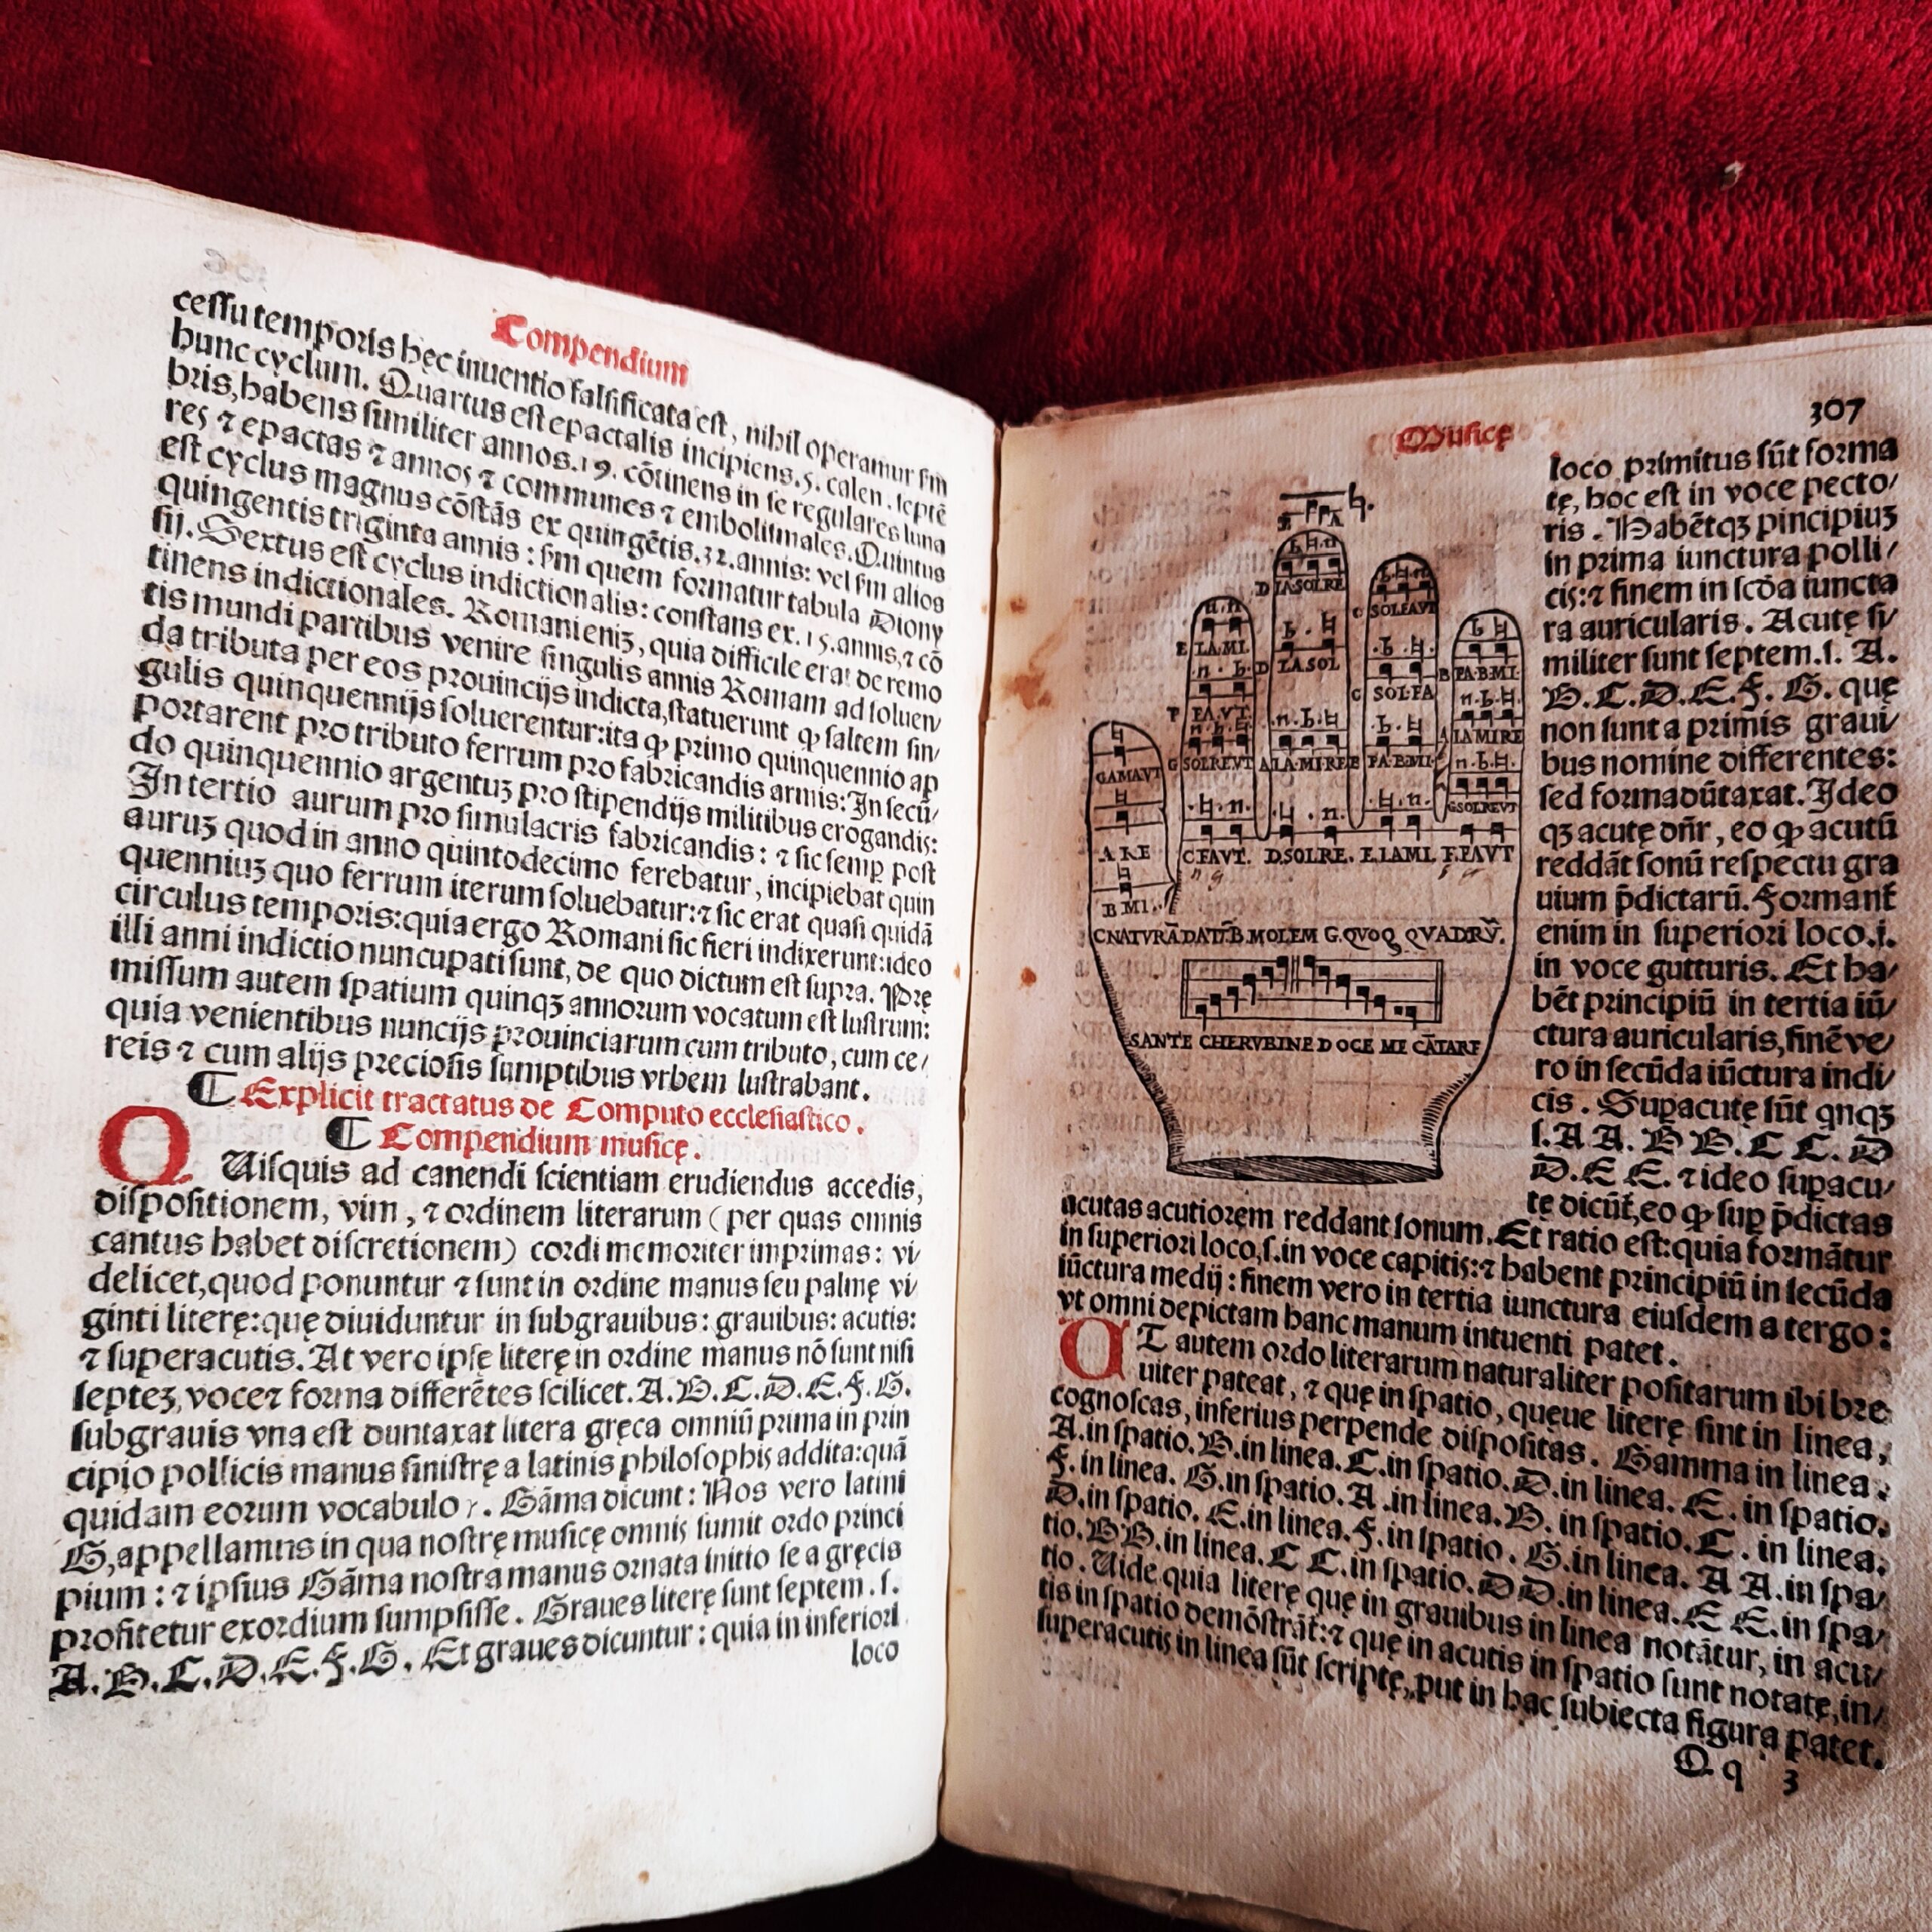 Compendium
cessu temporis hęc inuentio falsificata est, nihil operamur s̄m
hunc cyclum. Quartus est epactalis incipiens.5. calen. septẽ
bris, habens similiter annos.19. cõtinens in se regulares luna
res ⁊ epactas ⁊ annos ⁊ communes ⁊ embolismales. Quintus
est cyclus magnus cõstãs ex quingẽtis.32. annis: vel s̄m alios
quingentis triginta annis: s̄m quem formatur tabula Diony
sij. Sextus est cyclus indictionalis: constans ex.15. annis, ⁊ cõ
tinens indictionales. Romani eniꝫ, quia difficile erat de remo
tis mundi partibus venire singulis annis Romam ad soluen/
da tributa per eos prouincijs indicta, statuerunt ꝙ saltem sin/
gulis quinquennijs soluerentur: ita ꝙ primo quinquennio ap
portarent pro tributo ferrum pro fabricandis armis: In secũ/
do quinquennio argentuꝫ pro stipendijs militibus erogandis:
In tertio aurum pro simulacris fabricandis: ⁊ sic semꝑ post
auruꝫ quod in anno quintodecimo ferebatur, incipiebat quin
quenniuꝫ quo ferrum iterum soluebatur: ⁊ sic erat quasi quidã
circulus temporis: quia ergo Romani sic fieri indixerunt: ideo
illi anni indictio nuncupati sunt, de quo dictum est supra. Prę
missum autem spatium quinqꝫ annorum vocatum est lustrum:
quia venientibus nuncijs prouinciarum cum tributo, cum ce/
reis ⁊ cum alijs preciosis sumptibus vrbem lustrabant.
¶ Explicit tractatus de Computo ecclesiastico.
¶ Compendium musicę.
QUisquis ad canendi scientiam erudiendus accedis,
dispositionem, vim, ⁊ ordinem literarum (per quas omnis
cantus habet discretionem) cordi memoriter imprimas: vi/
delicet, quod ponuntur ⁊ sunt in ordine manus seu palmę vi/
ginti literę: quę diuiduntur in subgrauibus: grauibus: acutis:
⁊ superacutis. At vero ipsę literę in ordine manus nõ sunt nisi
septeꝫ, voce ⁊ forma differẽtes scilicet. A.B.C.D.E.F.G.
subgrauis vna est duntaxat litera gręca omniũ prima in prin
cipio pollicis manus sinistrę a latinis philosophis addita: quã
quidam eorum vocabulo γ. Gãma dicunt: Nos vero latini
G, appellamus in qua nostrę musicę omnis sumit ordo princi
pium: ⁊ ipsius Gãma nostra manus ornata initio se a gręcis
profitetur exordium sumpsisse. Graues literę sunt septem.s.
A.B.C.D.E.F.G. Et graues dicuntur: quia in inferiori
loco
Musicę
307
loco primitus sũt forma
tę, hoc est in voce pecto/
ris. Habẽtqꝫ pincipiuꝫ
in prima iunctura polli/
cis: ⁊ finem in scd̃a iuncta
ra auricularis. Acutę si/
militer sunt septem.s. A.
B.C.D.E.F.G. quę
non sunt a primis graui/
bus nomine differentes:
sed forma dũtaxat. Ideo
qꝫ acutę dñr, eo ꝙ acutũ
reddãt sonũ respectu gra
uium p̄dictarũ. Formant̃
enim in superiori loco.i.
in voce gutturis. Et ha/
bẽt principiũ in tertia iũ/
ctura auricularis, finẽ ve/
ro in secũda iũctura indi/
cis. Supacutę sũt qnqꝫ
s.A A. B B. C C. D
D. E E. ⁊ ideo supacu/
tę dicũt̃, eo ꝙ sup p̄dictas
D LA.SOL.RE
C SOL.FA.VT
E LA.MI.
D LA.SOL
B FA.B.MI.
C SOL.FA
F FA.VT
A LA.MI.RE
GAMAVT
G SOL.RE.VT A LA.MI.RE B FA.B.MI.
G SOL.RE.VT
A RE
C.FAVT. D.SOLRE. E.LAMI. F.FAVT
B MI.
C NATVRÃ DAT. F. B.MOLEM G.QVOQ QVADRṼ.
SANTE CHERVBINE DOCE ME CÃTARE
acutas acutiorem reddant sonum. Et ratio est: quia formãtur
in superiori loco, s. in voce capitis: ⁊ habent principiũ in secũda
iũctura medij: finem vero in tertia iunctura eiusdem a tergo:
vt omni depictam hanc manum intuenti patet.
UT autem ordo literarum naturaliter positarum ibi bre
uiter pateat, ⁊ quę in spatio, quęue literę sint in linea,
cognoscas, inferius perpende dispositas. Gamma in linea.
A.in spatio. B.in linea. C.in spatio. D.in linea. E.in spatio.
F.in linea. G.in spatio. A.in linea. B.in spatio. C.in linea.
D.in spatio. E.in linea. F.in spatio. G.in linea. A A.in spa/
tio. B B.in linea. C C.in spatio. D D.in linea. E E.in spa/
tio. Uide quia literę que in grauibus in linea notãtur, in acu/
tis in spatio demõstrãt: ⁊ quę in acutis in spatio sunt notatę, in/
superacutis in linea sũt scriptę, ꝓut in hac subiecta figura patet.
Q q 3